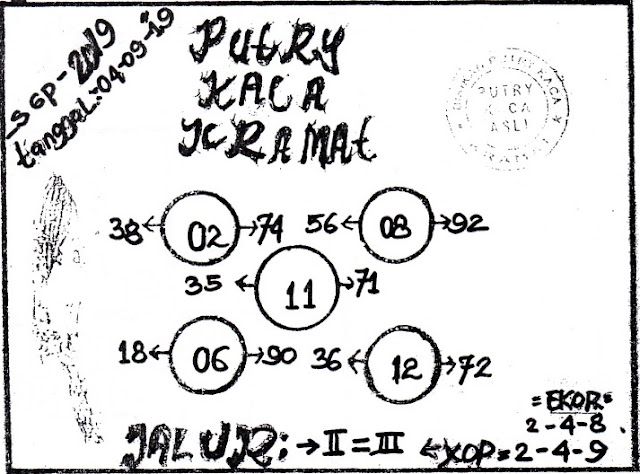 SEP-2019
tanggal:-04-09-"19
PUtRY
KACA
KRAMAt
PUTRY
ASLI
38 ← 02 → 74
56 ← 08 → 92
35 ← 11 → 71
18 ← 06 → 90
36 ← 12 → 72
=EKOR=
2-4-8.
JALUR: → II = III ← KOP = 2-4-9